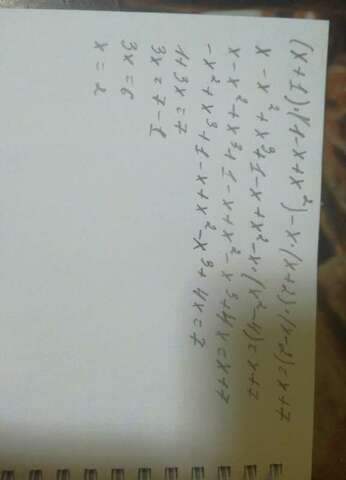 (x+1)·(1-x+x²)-x·(x+2)·(x-2)=x+7
x-x²+x³+1-x+x²-x·(x²-4)=x+7
x-x²+x³+1-x+x²-x³+4x=x+7
-x²+x³+1-x+x²-x³+4x=7
1+3x=7
3x=7-1
3x=6
x=2